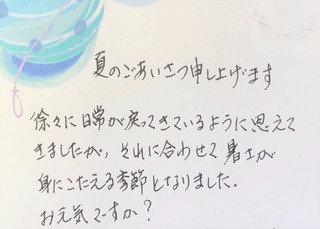 夏のごあいさつ申し上げます
徐々に日常が戻ってきているように思えて
きましたが、それに合わせて暑さが
身にこたえる季節となりました。
お元気ですか？